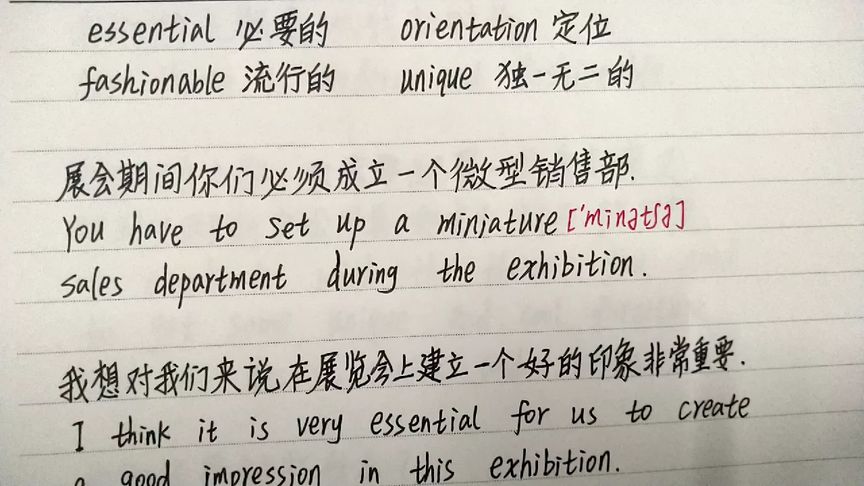 essential 必要的 orientation 定位
fashionable 流行的 unique 独一无二的
展会期间你们必须成立一个微型销售部.
You have to set up a miniature ['minətʃə]
sales department during the exhibition.
我想对我们来说在展览会上建立一个好的印象非常重要.
I think it is very essential for us to create
a good impression in this exhibition.